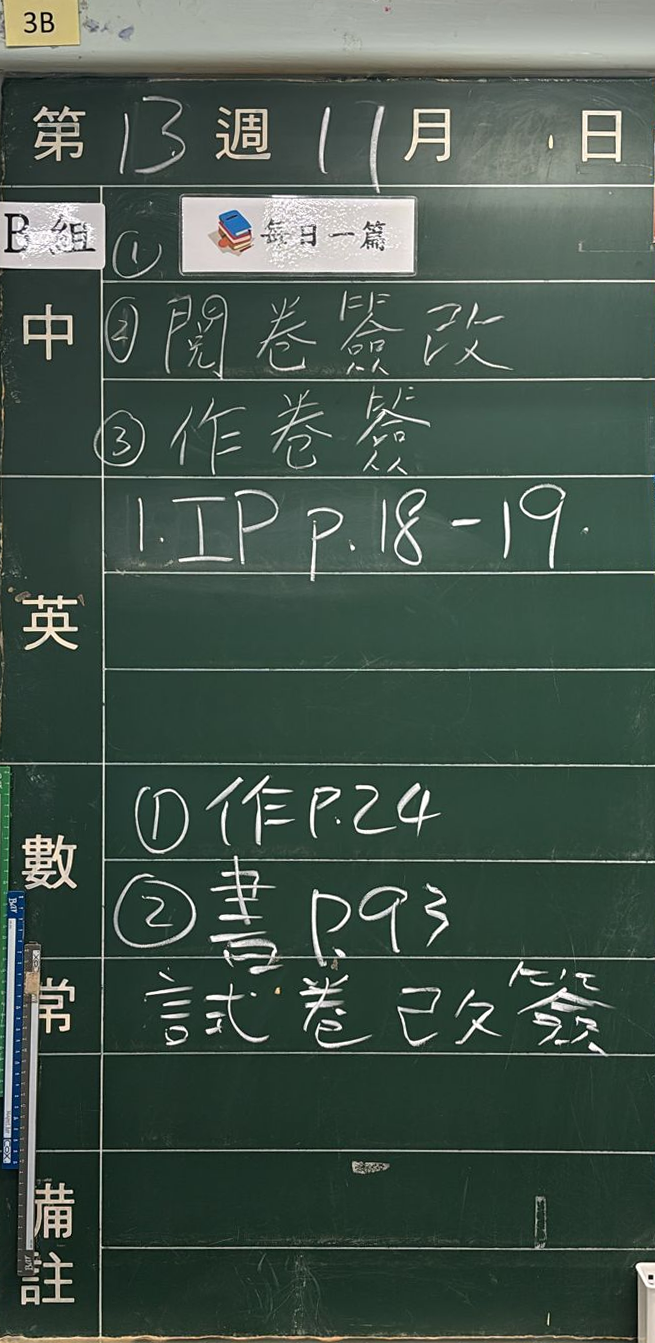 3B
第 13 週 11 月 日
B 組
① 每日一篇
中
② 閱卷簽改
③ 作卷簽
英
1. IP p.18-19.
數
① 作P.24
② 書 P.93
常
試卷改簽
備註